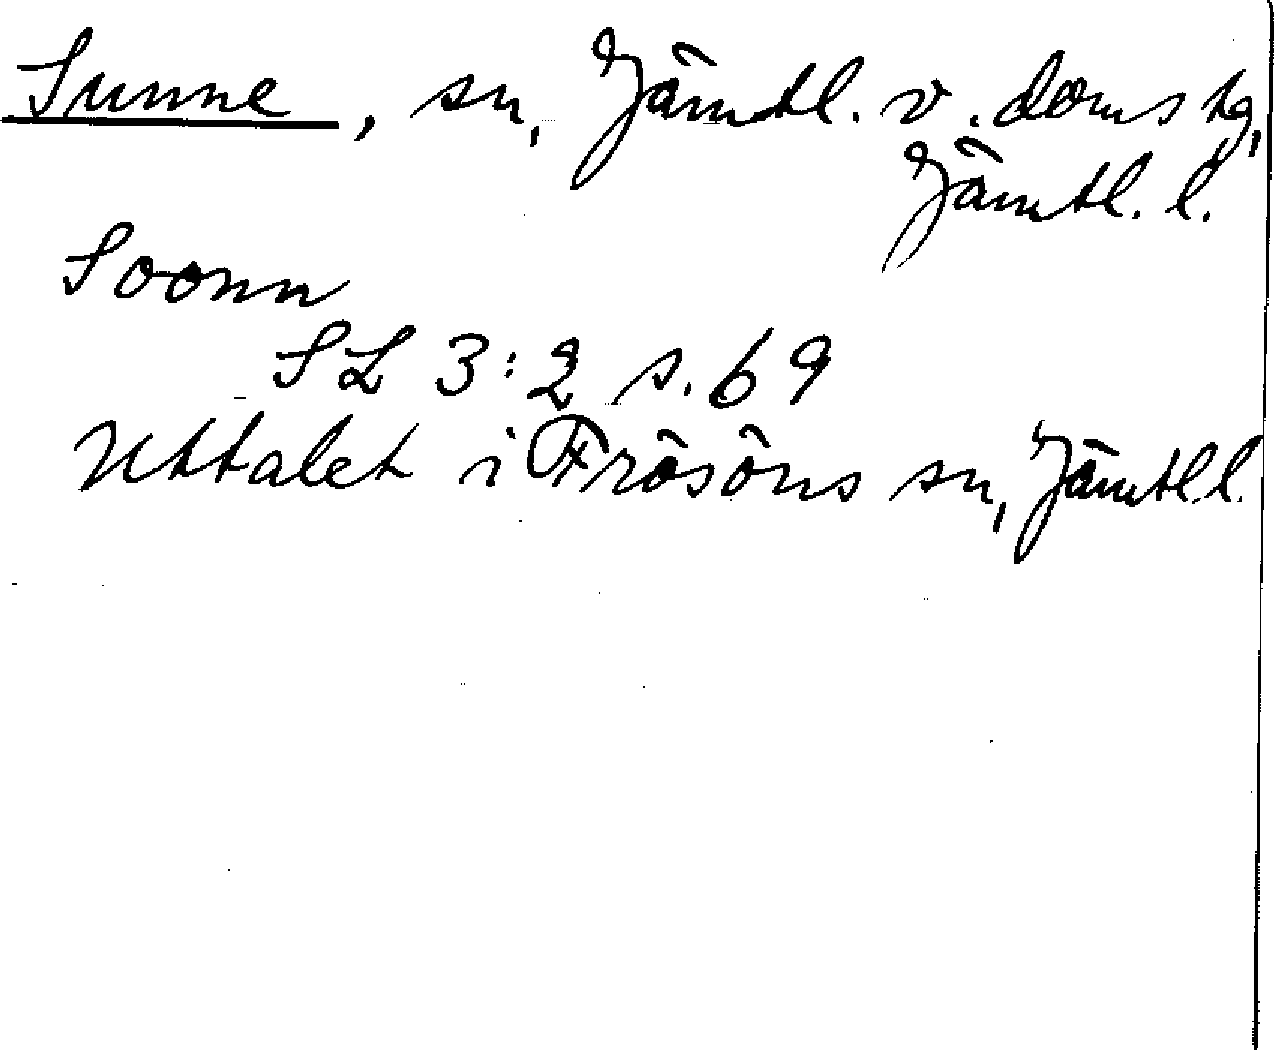 Sunne, sn, Jämtl. v. doms hg,
Jämtl. l.
Soonn
SL 3:2 s. 69
Uttalet i Frösöns sn, Jämtl.l.